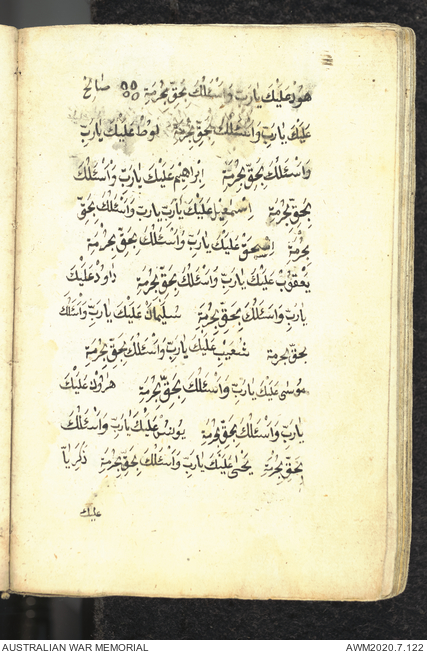 هود عليك يارب واسئلك بحق بحرمة صالح
عليك يارب واسئلك بحق بحرمة لوط عليك يارب
واسئلك بحق بحرمة ابراهيم عليك يارب واسئلك
بحق بحرمة اسمعيل عليك يارب يارب واسئلك بحق
بحرمة اسحق عليك يارب واسئلك بحق بحرمة
يعقوب عليك يارب واسئلك بحق بحرمة داود عليك
يارب واسئلك بحق بحرمة سليمان عليك يارب واسئلك
بحق بحرمة شعيب عليك يارب واسئلك بحق بحرمة
موسى عليك يارب واسئلك بحق بحرمة هرون عليك
يارب واسئلك بحق بحرمة يونس عليك يارب واسئلك
بحق بحرمة يحيى عليك يارب واسئلك بحق بحرمة زكريا
عليك
AUSTRALIAN WAR MEMORIAL AWM2020.7.122